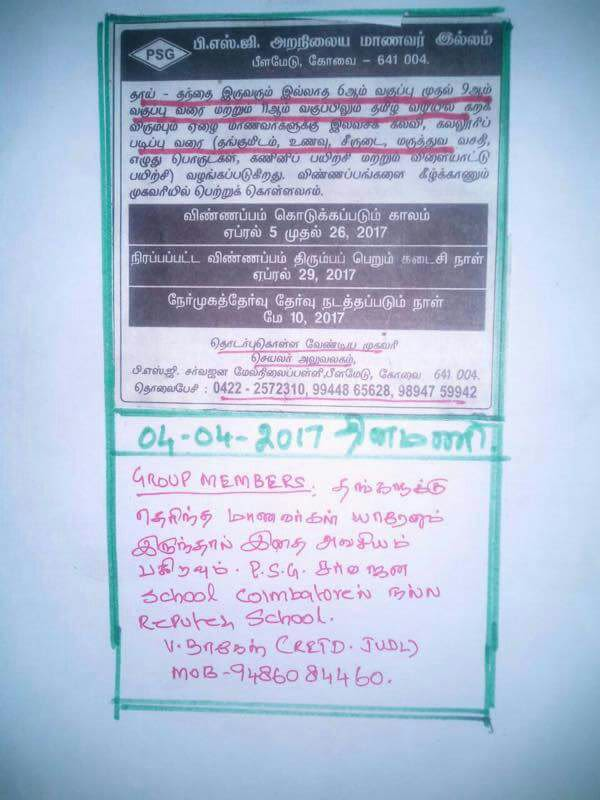 PSG
பி.எஸ்.ஜி. அறநிலைய மாணவர் இல்லம்
பீளமேடு, கோவை – 641 004.
தாய் – தந்தை இருவரும் இல்லாத 6ஆம் வகுப்பு முதல் 9ஆம்
வகுப்பு வரை மற்றும் 11ஆம் வகுப்பிலும் தமிழ் வழியில் கற்க
விரும்பும் ஏழை மாணவர்களுக்கு இலவசக் கல்வி, கல்லூரிப்
படிப்பு வரை (தங்குமிடம், உணவு, சீருடை, மருத்துவ வசதி,
எழுது பொருட்கள், கணினிப் பயிற்சி மற்றும் விளையாட்டு
பயிற்சி) வழங்கப்படுகிறது. விண்ணப்பங்களை கீழ்க்காணும்
முகவரியில் பெற்றுக் கொள்ளலாம்.
விண்ணப்பம் கொடுக்கப்படும் காலம்
ஏப்ரல் 5 முதல் 26, 2017
நிரப்பப்பட்ட விண்ணப்பம் திரும்பப் பெறும் கடைசி நாள்
ஏப்ரல் 29, 2017
நேர்முகத்தேர்வு தேர்வு நடத்தப்படும் நாள்
மே 10, 2017
தொடர்புகொள்ள வேண்டிய முகவரி
செயலர் அலுவலகம்,
பிஎஸ்.ஜி. சர்வஜன மேல்நிலைப்பள்ளி,பீளமேடு, கோவை 641 004.
தொலைபேசி : 0422 - 2572310, 99448 65628, 98947 59942
04-04-2017 தினமணி.
GROUP MEMBERS: தங்களுக்கு
தெரிந்த மாணவர்கள் யாரேனும்
இருந்தால் இதை அவசியம்
பகிரவும். P.S.G. சர்வஜன
School Coimbatoreல் நல்ல
Reputed School.
V. நாகேஸ் (RETD. JUDL)
MOB-9486084460.